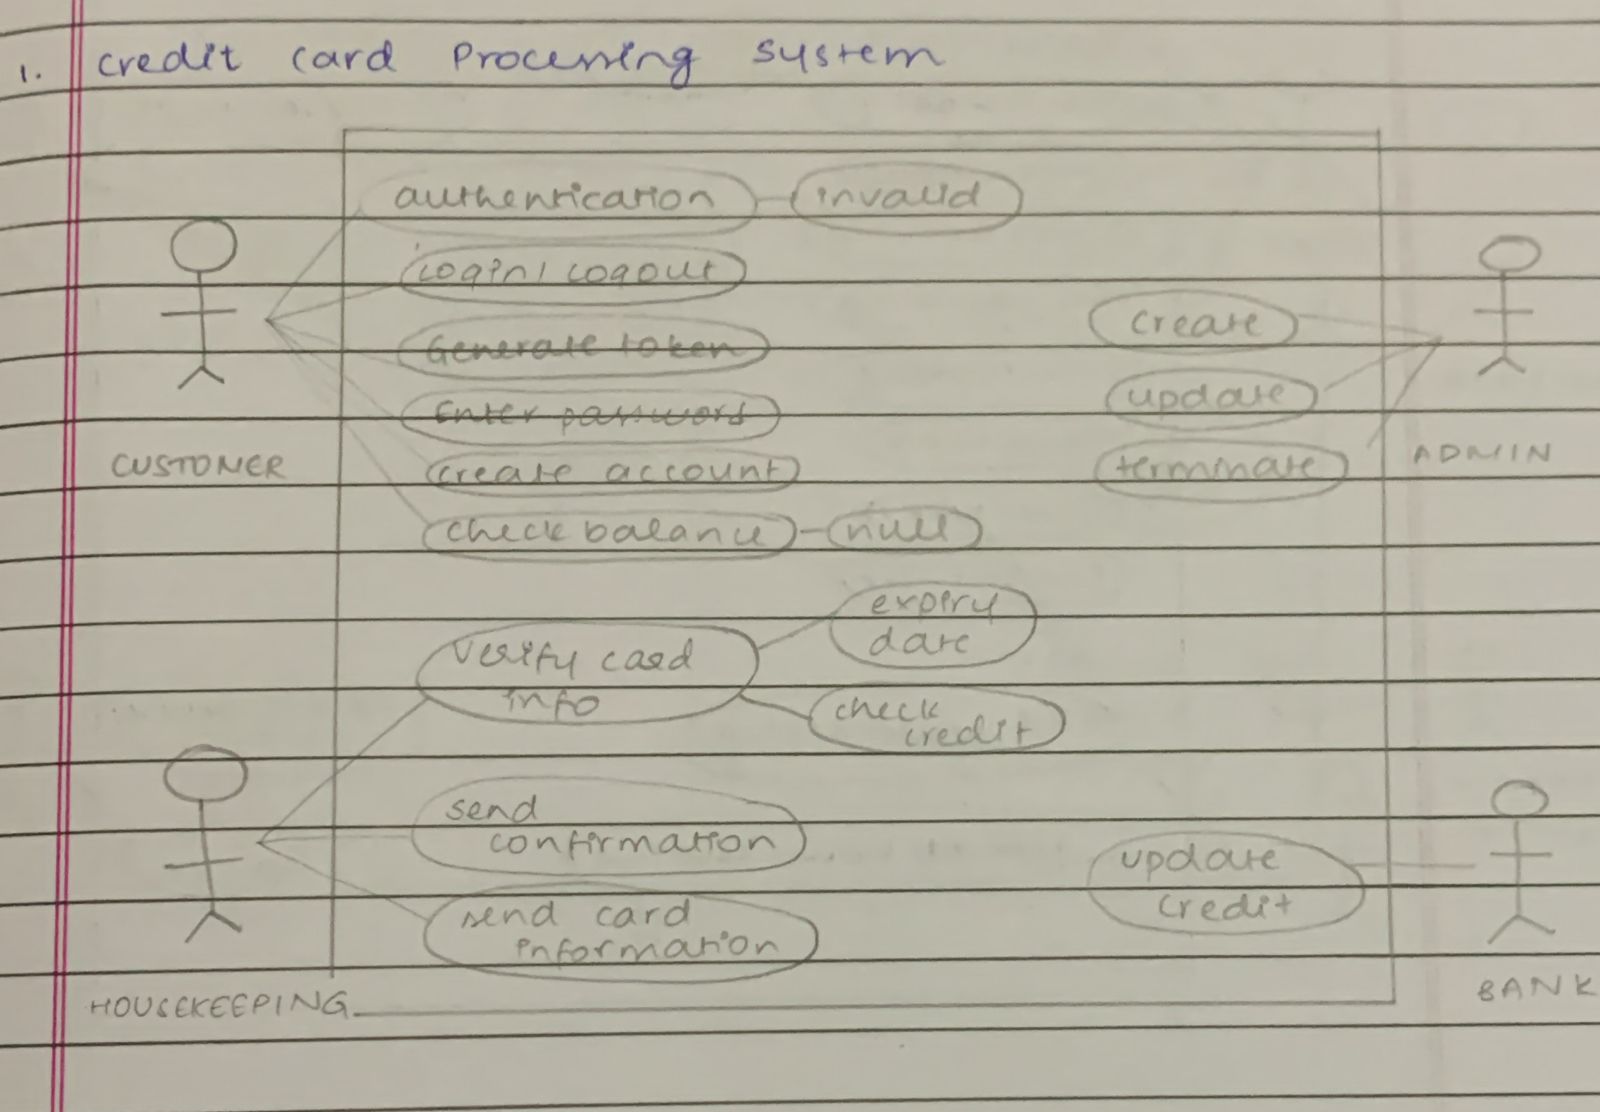 1. Credit Card Processing System
authentication
invalid
login/logout
Generate token
Enter password
create account
check balance
null
create
update
terminate
CUSTOMER
ADMIN
verify card
info
expiry
date
check
credit
send
confirmation
send card
information
update
credit
HOUSEKEEPING
BANK